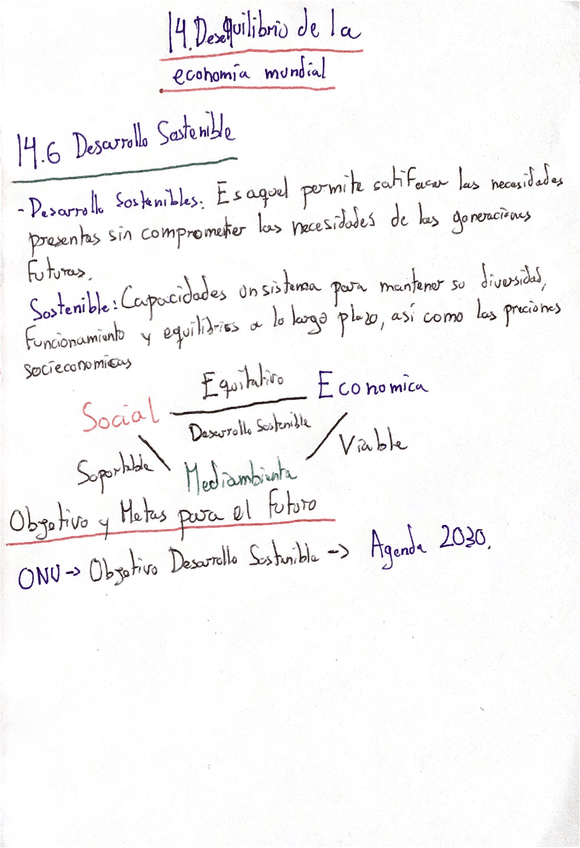 14. Desequilibrio de la
economía mundial
14.6 Desarrollo Sostenible
- Desarrollo Sostenibles: Es aquel permite satifacer las necesidades
presentes sin comprometer las necesidades de las generaciones
futuras.
Sostenible: Capacidades un sistema para mantener su diversidad,
funcionamiento y equilibrios a lo largo plazo, así como las preciones
socieconomicas
Equitativo
Social Economica
Desarrollo Sostenible
Soportable Viable
Mediambiente
Objetivo y Metas para el futuro
ONU -> Objetivo Desarrollo Sostenible -> Agenda 2030.